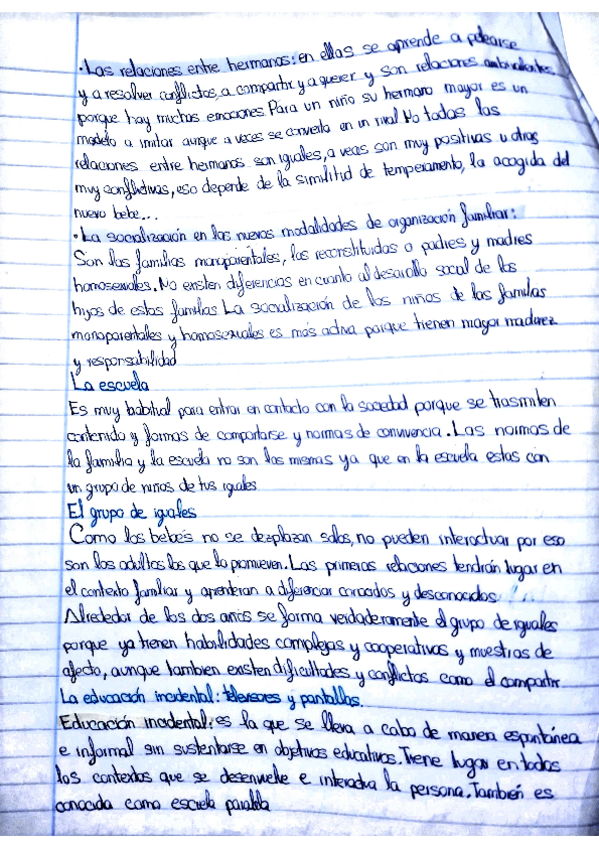 ·Las relaciones entre hermanos: en ellas se aprende a pelearse
y a resolver conflictos, a compartir y a querer y son relaciones ambivalentes
porque hay muchas emociones. Para un niño su hermano mayor es un
modelo a imitar aunque a veces se convierta en un rival No todas las
relaciones entre hermanos son iguales, a veces son muy positivas u otras
muy conflictivas, eso depende de la similitud de temperamento, la acogida del
nuevo bebe...
·La socialización en las nuevas modalidades de organización familiar:
Son las familias monoparentales, las reconstituidas o padres y madres
homosexuales. No existen diferencias en cuanto al desarollo social de los
hijos de estas familas La socialización de los niños de las familas
monoparentales y homosexuales es más activa porque tienen mayor madurez
y responsibilidad
La escuela
Es muy habitual para entrar en contacto con la sociedad porque se trasmiten
contenido y formas de comportarse y normas de convivencia. Las normas de
la familia y la escuela no son las mismas ya que en la escuela estas con
un grupo de niños de tus iguales
El grupo de iguales
Como los bebés no se dezplazan solos, no pueden interactuar por eso
son los adultos los que lo promueven. Las primeras relaciones tendrán lugar en
el contexto familiar y aprenderan a diferenciar conocidos y desconocidos
Alrededor de los dos años se forma verdaderamente el grupo de iguales
porque ya tienen habilidades complejas y cooperativas y muestras de
afecto, aunque tambien existen dificultades y conflictos como el compartir
La educación incidental: televisores y pantallas.
Educación incidental: es la que se lleva a cabo de manera espontánea
e informal sin sustentarse en objetivos educativos. Tiene lugar en todos
los contextos que se desenvuelve e interactua la persona. También es
conocida como escuela paralela